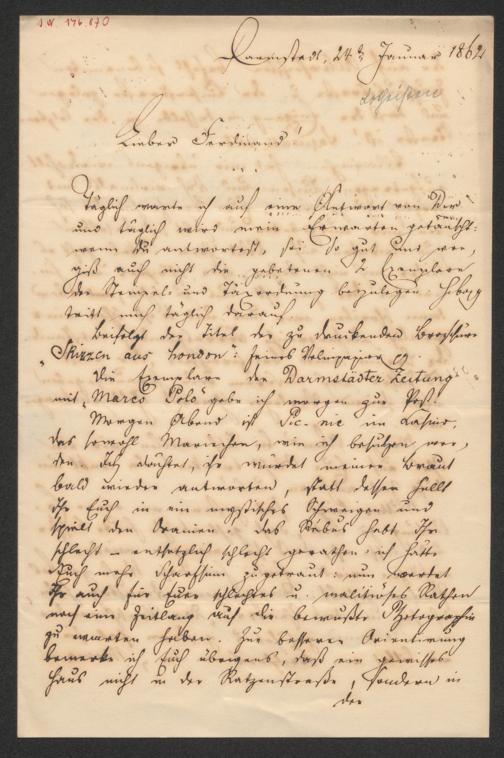 I.N. 146.870
Darmstadt, 24ten Januar 1862
Lieber Ferdinand!
Täglich warte ich auf eine Antwort von Dir
und täglich wird mein Erwarten getäuscht:
wenn Du antwortest, sei so gut und ver,
giß auch nicht die gebetenen 2 Exemplare
der Stempel und Taxordnung beizulegen.
tritt mich täglich darauf
Beifolgt der Titel der zu druckenden Broschüre
"Skizzen aus London": feines Velinpapier
Die Exemplare der Darmstädter Zeitung
mit "Marco Polo" gebe ich morgen zur Post.
Morgen Abend ist Pic-nic im Casino,
das sowohl Mariechen, wie ich besuchen wer,
den. Ich dächtet, Ihr würdet meiner Braut
bald wieder antworten, statt dessen hüllt
Ihr Euch in ein mystisches Schweigen und
spielt den Oranien. Das Rebus habt Ihr
schlecht – entsetzlich schlecht gerathen; ich hätte
Euch mehr Scharfsinn zugetraut: nun werdet
Ihr auch für Euer schlechtes u. malitiöses Rathen
noch eine Zeitlang auf die bewußte Photographie
zu warten haben. Zur besseren Orientirung
bemerke ich Euch übrigens, daß ein gewisses
Haus nicht in der Katzenstraße, sondern in
der